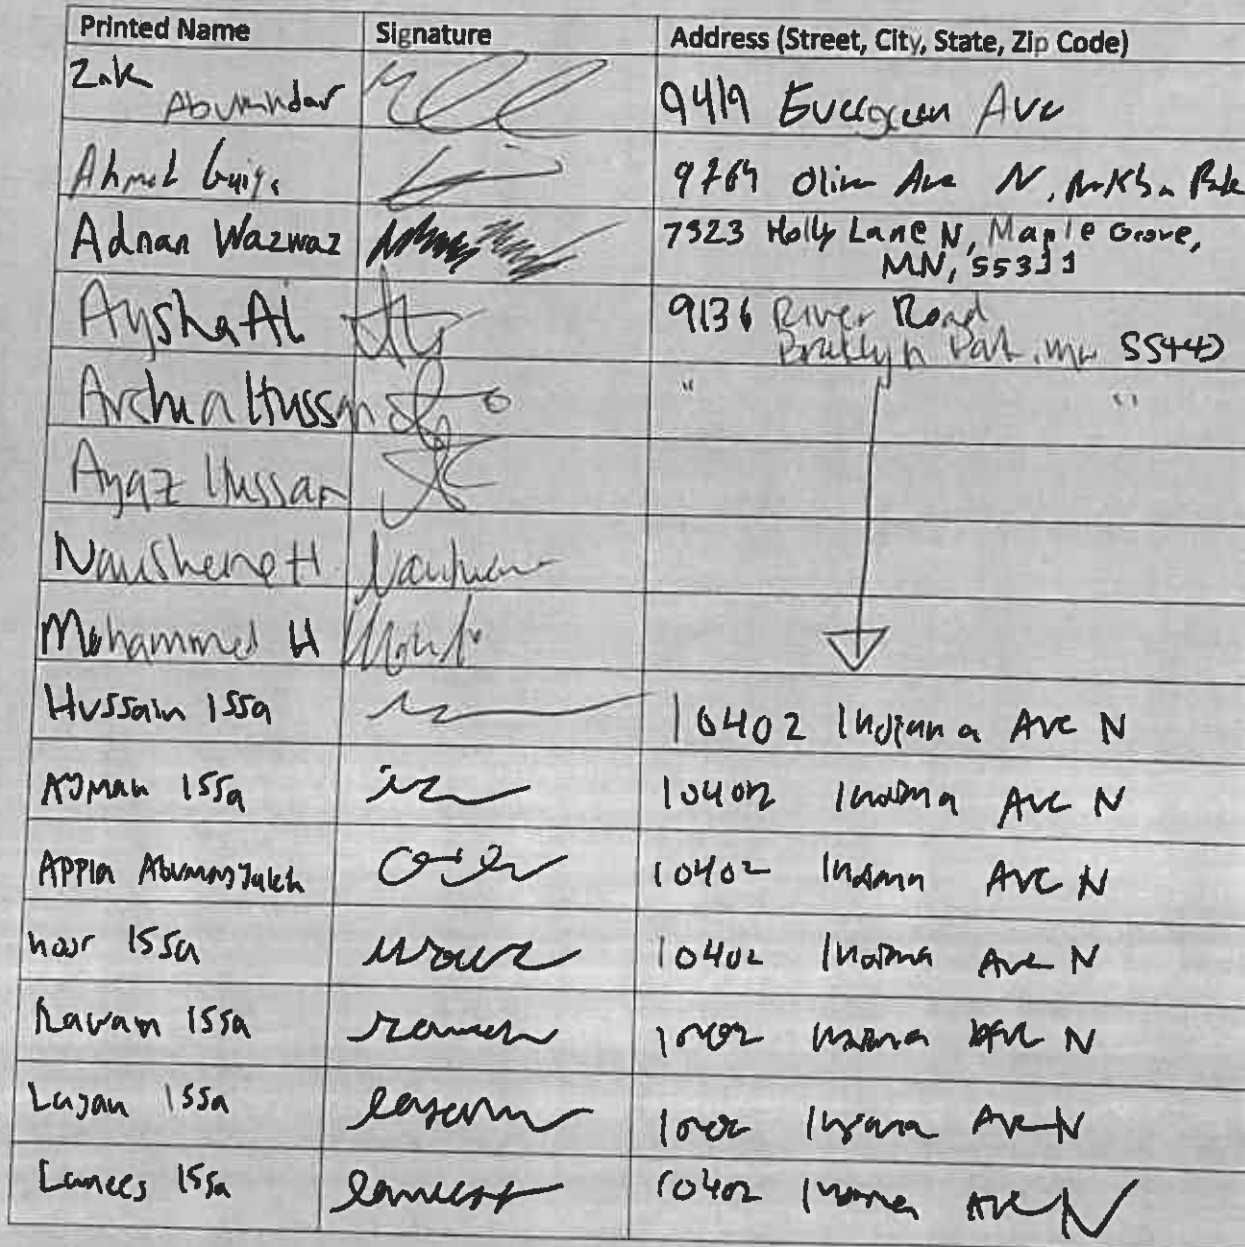 Printed Name Signature Address (Street, City, State, Zip Code)
Zak
Abumkhdar 9419 Evergreen Ave
Ahmed 9764 Olive Ave N,
Adnan Wazwaz 7323 Holly Lane N, Maple Grove,
MN, 55311
Aysha Ali 9136 River Road
55443
Hussan " "
Ayaz Hussan
Naushene H
Mohammed H
Hussain Issa 10402 Indiana Ave N
Ayman Issa 10402 Indiana Ave N
10402 Indiana Ave N
nour Issa 10402 Indiana Ave N
Rawan Issa 10402 Indiana Ave N
Layan Issa 10402 Indiana Ave N
Lamees Issa 10402 Indiana Ave N